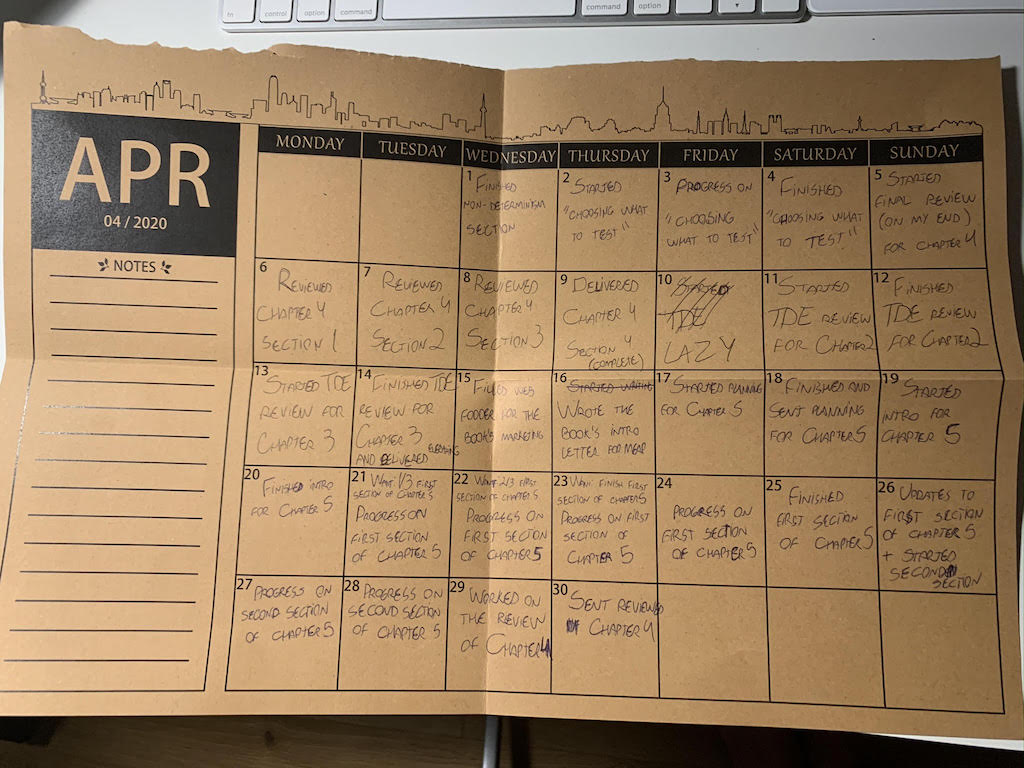 fn
control
option
command
command
option
APR
04 / 2020
NOTES
MONDAY
TUESDAY
WEDNESDAY
THURSDAY
FRIDAY
SATURDAY
SUNDAY
1 FINISHED
NON-DETERMINISM
SECTION
2 STARTED
"CHOOSING WHAT
TO TEST"
3 PROGRESS ON
"CHOOSING
WHAT TO TEST"
4 FINISHED
"CHOOSING WHAT
TO TEST"
5 STARTED
FINAL REVIEW
(ON MY END)
FOR CHAPTER 4
6 REVIEWED
CHAPTER 4
SECTION 1
7 REVIEWED
CHAPTER 4
SECTION 2
8 REVIEWED
CHAPTER 4
SECTION 3
9 DELIVERED
CHAPTER 4
SECTION 4
(COMPLETE)
10 STARTED
TDE
LAZY
11 STARTED
TDE REVIEW
FOR CHAPTER 2
12 FINISHED
TDE REVIEW
FOR CHAPTER 2
13 STARTED TDE
REVIEW FOR
CHAPTER 3
14 FINISHED TDE
REVIEW FOR
CHAPTER 3
AND DELIVERED EVERYTHING
15 FILLED WEB
FODDER FOR THE
BOOK'S MARKETING
16 STARTED WRITING
WROTE THE
BOOK'S INTRO
LETTER FOR MEAP
17 STARTED PLANNING
FOR CHAPTER 5
18 FINISHED AND
SENT PLANNING
FOR CHAPTER 5
19 STARTED
INTRO FOR
CHAPTER 5
20 FINISHED INTRO
FOR CHAPTER 5
21 WANT: 1/3 FIRST
SECTION OF CHAPTER 5
PROGRESS ON
FIRST SECTION
OF CHAPTER 5
22 WANT: 2/3 FIRST
SECTION OF CHAPTER 5
PROGRESS ON
FIRST SECTION
OF CHAPTER 5
23 WANT: FINISH FIRST
SECTION OF CHAPTER 5
PROGRESS ON FIRST
SECTION OF
CHAPTER 5
24
PROGRESS ON
FIRST SECTION
OF CHAPTER 5
25 FINISHED
FIRST SECTION
OF CHAPTER 5
26 UPDATES TO
FIRST SECTION
OF CHAPTER 5
+ STARTED
SECOND
SECTION
27 PROGRESS ON
SECOND SECTION
OF CHAPTER 5
28 PROGRESS ON
SECOND SECTION
OF CHAPTER 5
29 WORKED ON
THE REVIEW
OF CHAPTER 4
30 SENT REVIEWED
CHAPTER 4